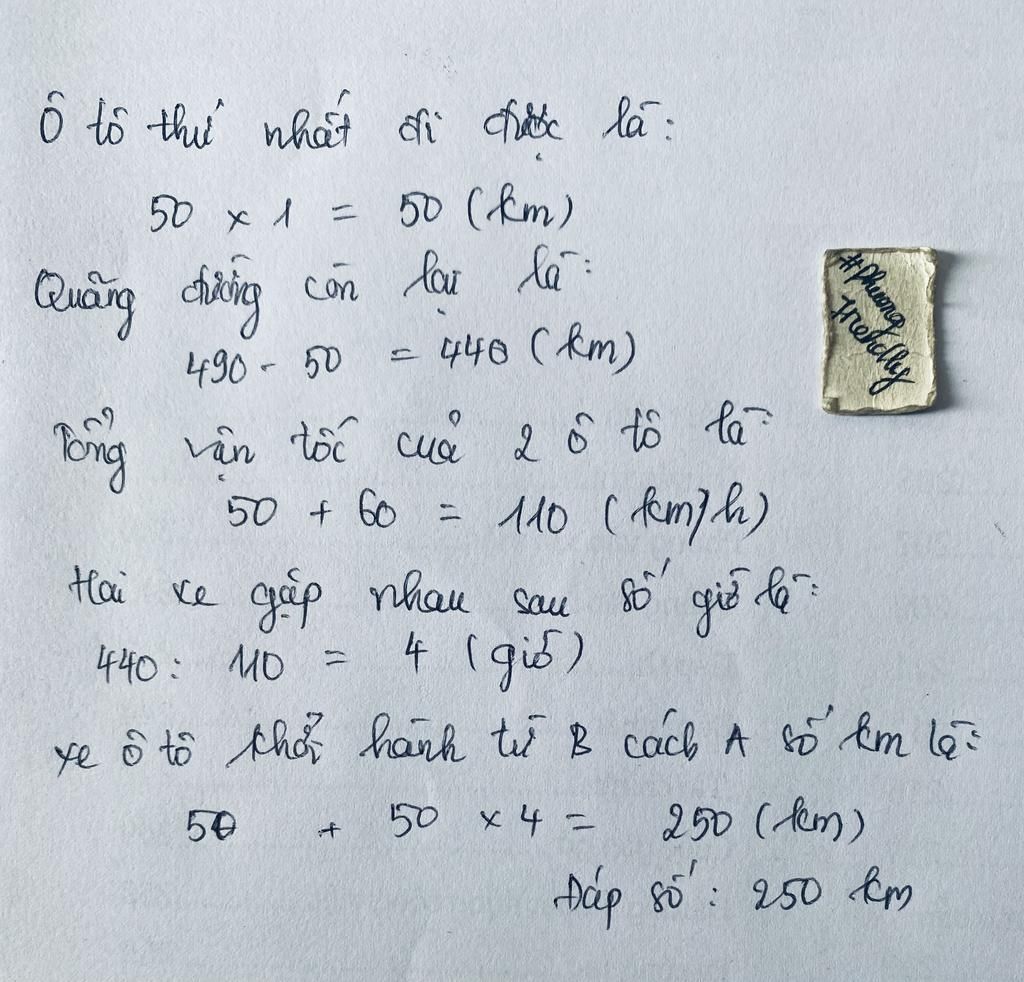 Ô tô thứ nhất đi được là:
50 x 1 = 50 (km)
Quãng đường còn lại là:
490 - 50 = 440 (km)
Tổng vận tốc của 2 ô tô là:
50 + 60 = 110 (km/h)
Hai xe gặp nhau sau số giờ là:
440 : 110 = 4 (giờ)
xe ô tô khởi hành từ B cách A số km là:
50 + 50 x 4 = 250 (km)
Đáp số: 250 km
#phuong
Friendly